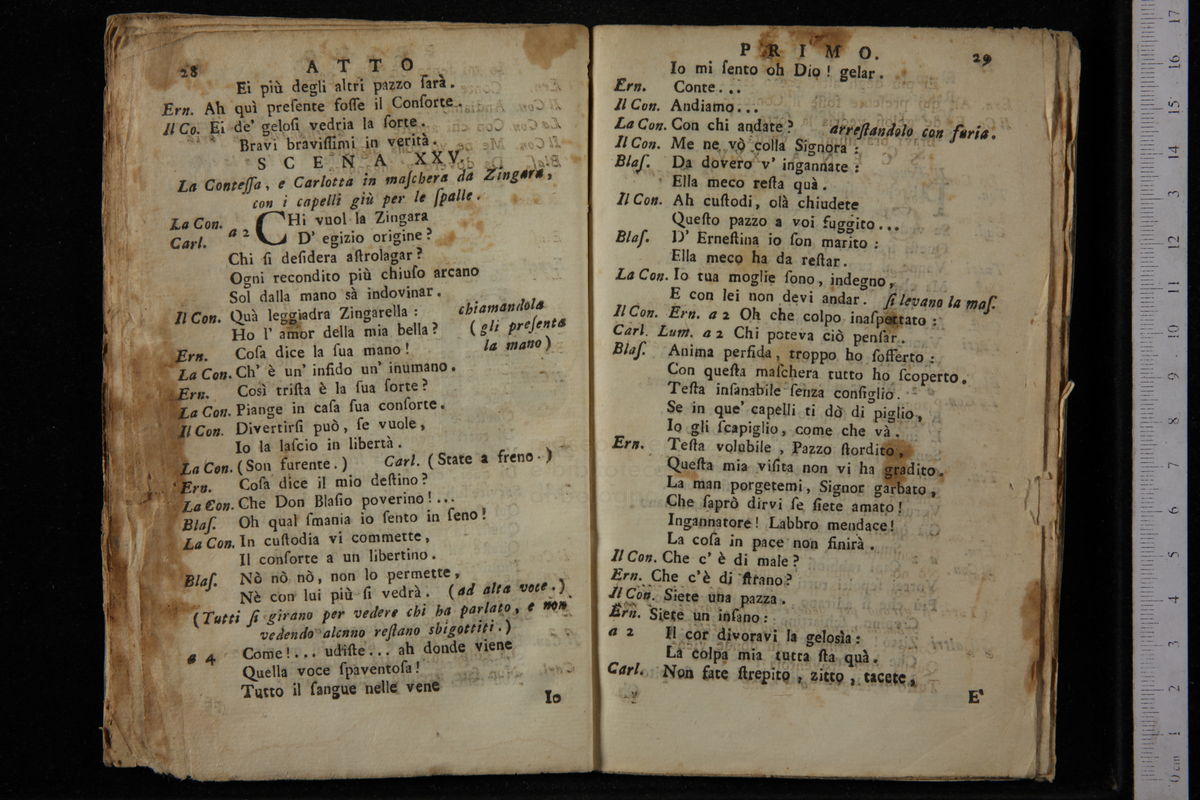 28 ATTO
Ei più degli altri pazzo ſarà.
Ern. Ah quì preſente foſſe il Conſorte.
Il Co. Ei de' geloſi vedria la ſorte.
Bravi braviſſimi in verità.
SCENA XXV.
La Conteſſa, e Carlotta in maſchera da Zingara,
con i capelli giù per le ſpalle.
La Con. Carl. a 2 CHi vuol la Zingara
D' egizio origine?
Chi ſi deſidera aſtrolagar?
Ogni recondito più chiuſo arcano
Sol dalla mano sà indovinar.
Il Con. Quà leggiadra Zingarella: chiamandola
Ho l' amor della mia bella? (gli preſenta
Ern. Coſa dice la ſua mano! la mano)
La Con. Ch' è un' infido un' inumano.
Ern. Così triſta è la ſua ſorte?
La Con. Piange in caſa ſua conſorte.
Il Con. Divertirſi può, ſe vuole,
Io la laſcio in libertà.
La Con. (Son furente.) Carl. (State a freno.)
Ern. Coſa dice il mio deſtino?
La Con. Che Don Blaſio poverino!...
Blaſ. Oh qual ſmania io ſento in ſeno!
La Con. In cuſtodia vi commette,
Il conſorte a un libertino.
Blaſ. Nò nò nò, non lo permette,
Nè con lui più ſi vedrà. (ad alta voce.)
(Tutti ſi girano per vedere chi ha parlato, e non
vedendo alcnno reſtano sbigottiti.)
a 4 Come!... udiſte... ah donde viene
Quella voce ſpaventoſa!
Tutto il ſangue nelle vene
Io
PRIMO. 29
Io mi ſento oh Dio! gelar.
Ern. Conte...
Il Con. Andiamo...
La Con. Con chi andate? arreſtandolo con furia.
Il Con. Me ne vò colla Signora:
Blaſ. Da dovero v' ingannate:
Ella meco reſta quà.
Il Con. Ah cuſtodi, olà chiudete
Queſto pazzo a voi fuggito...
Blaſ. D' Erneſtina io ſon marito:
Ella meco ha da reſtar.
La Con. Io tua moglie ſono, indegno,
E con lei non devi andar. ſi levano la maſ.
Il Con. Ern. a 2 Oh che colpo inaſpettato:
Carl. Lum. a 2 Chi poteva ciò penſar.
Blaſ. Anima perfida, troppo ho ſofferto:
Con queſta maſchera tutto ho ſcoperto.
Teſta inſanabile ſenza conſiglio.
Se in que' capelli ti dò di piglio,
Io gli ſcapiglio, come che và.
Ern. Teſta volubile, Pazzo ſtordito,
Queſta mia viſita non vi ha gradito.
La man porgetemi, Signor garbato,
Che ſaprò dirvi ſe ſiete amato!
Ingannatore! Labbro mendace!
La coſa in pace non finirà.
Il Con. Che c' è di male?
Ern. Che c'è di ſtrano?
Il Con. Siete una pazza.
Ern. Siete un inſano:
a 2 Il cor divoravi la geloſia:
La colpa mia tutta ſta quà.
Carl. Non fate ſtrepito, zitto, tacete,
E'
0 cm 1 2 3 4 5 6 7 8 9 10 11 12 13 14 15 16 17